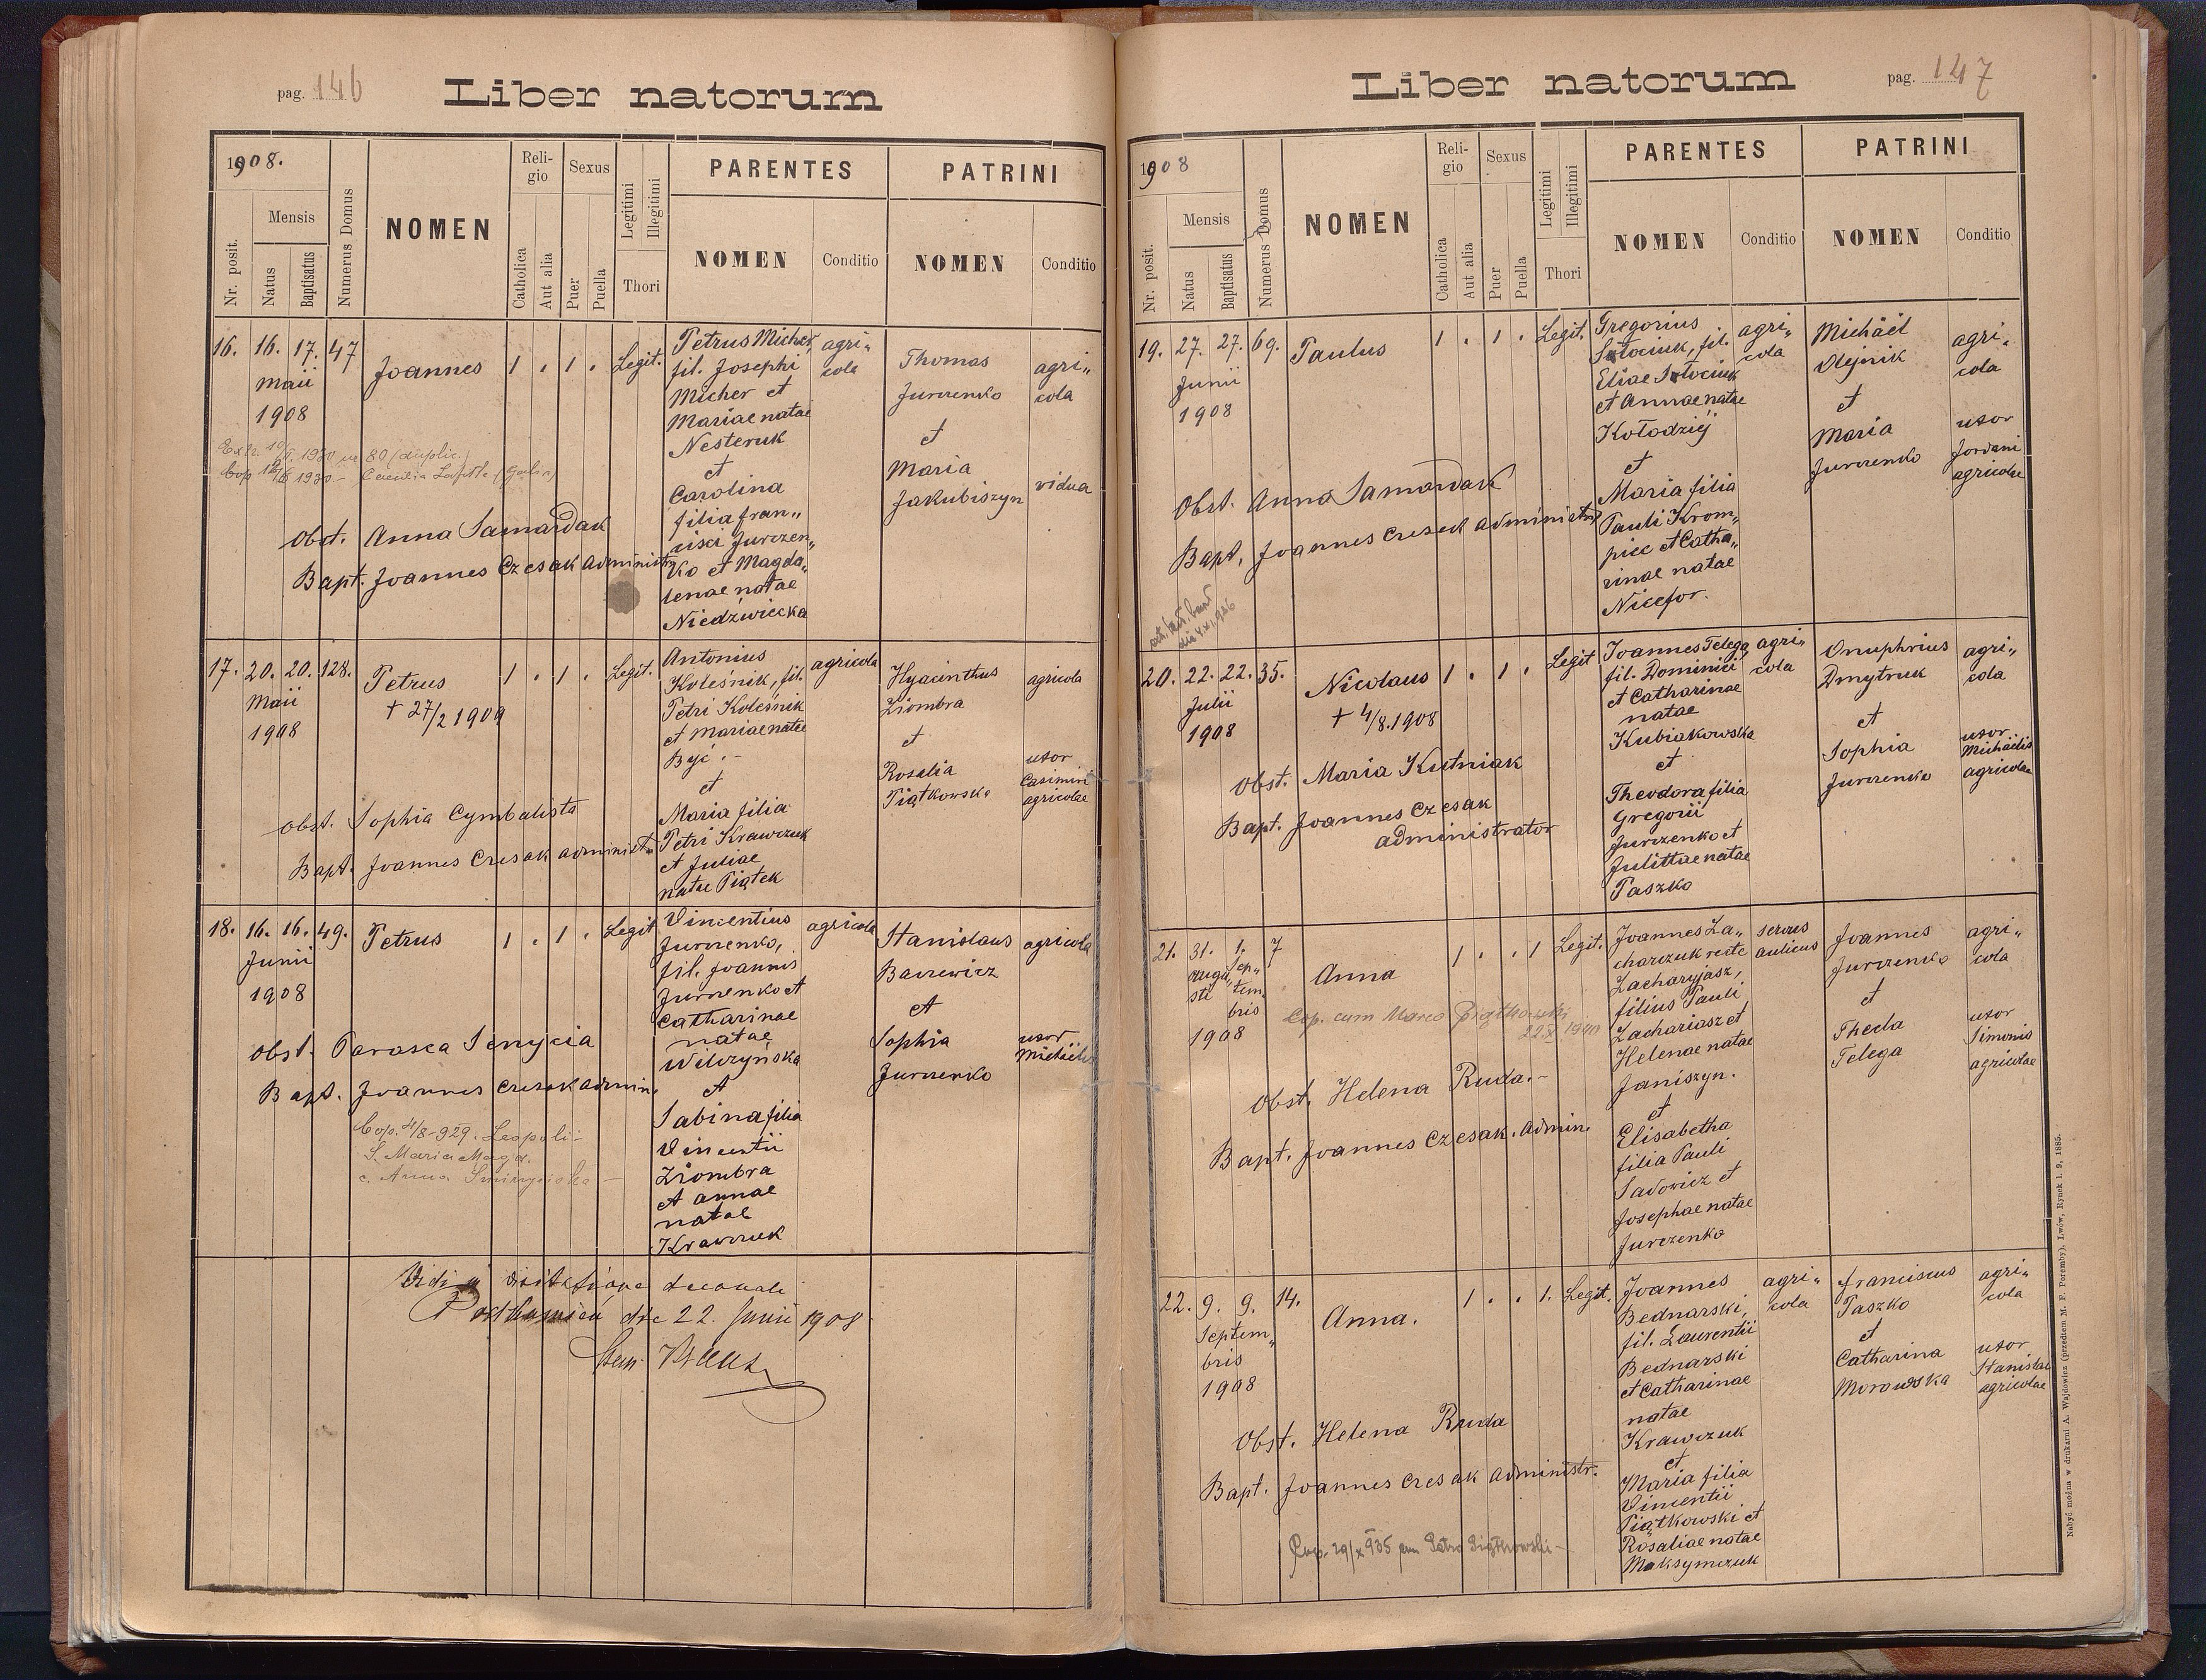 pag. 146
Liber natorum
1908.
Nr. posit.
Mensis
Natus
Baptisatus
Numerus Domus
NOMEN
Religio
Catholica
Aut alia
Sexus
Puer
Puella
Legitimi
Illegitimi
Thori
PARENTES
NOMEN
Conditio
PATRINI
NOMEN
Conditio
16. 16. 17. 47
Maii
1908
Joannes 1 . 1 . Legit.
Petrus Micher,
fil. Josephi
Micher et
Mariae natae
Nesteruk
et
Carolina
filia Fran„
cisci Jurczen„
ko et Magda„
lenae natae
Niedźwiecka
agri„
cola
Thomas
Jurczenko
et
Maria
Jakubiszyn
agri„
cola
vidua
Obst. Anna Samardak
Bapt. Joannes Czesak administr.
17. 20. 20. 128.
Maii
1908
Petrus 1 . 1 . Legit.
+ 27/2 1909
Antonius
Koleśnik, fil.
Petri Koleśnik
et Mariae natae
Być.-
et
Maria filia
Petri Krawczuk
et Juliae
natae Piątek
agricola
Hyacinthus
Ziombra
et
Rosalia
Piątkowska
agricola
uxor
Casimiri
agricolae
Obst. Sophia Cymbalista
Bapt. Joannes Czesak administr.
18. 16. 16. 49.
Junii
1908
Petrus 1 . 1 . Legit
Vincentius
Jurczenko,
fil. Joannis
Jurczenko et
Catharinae
natae
Wilczyńska
et
Sabina filia
Vincentii
Ziombra
et Annae
natae
Krawczuk
agricola
Stanislaus
Barzewicz
et
Sophia
Jurczenko
agricola
uxor
Michaelis
Obst. Parasca Senycia
Bapt. Joannes Czesak admin.
Cop. 4/8-929. Leopoli-
S. Maria Magd.
c. Anna
Vidi in visitatione decanali
die 22. Junii 1908
pag. 147
Liber natorum
1908
Nr. posit.
Mensis
Natus
Baptisatus
Numerus Domus
NOMEN
Religio
Catholica
Aut alia
Sexus
Puer
Puella
Legitimi
Illegitimi
Thori
PARENTES
NOMEN
Conditio
PATRINI
NOMEN
Conditio
19. 27. 27. 69.
Junii
1908
Paulus 1 . 1 . Legit.
Gregorius
fil.
Eliae
et Annae natae
Kołodziéj
et
Maria filia
Pauli Krom„
piec et Catha„
rinae natae
Nicefor.
agri„
cola
Michäel
Olejnik
et
Maria
Jurczenko
agri„
cola
uxor
Jordani
agricolae
Obst. Anna Samardak
Bapt. Joannes Czesak administr.
20. 22. 22. 35.
Julii
1908
Nicolaus 1 . 1 . Legit
+ 4/8.1908
Joannes Telega,
fil. Dominici
et Catharinae
natae
Kubiakowska
et
Theodora filia
Gregorii
Jurczenko et
Julittae natae
Paszko
agri„
cola
Onuphrius
Dmytruk
et
Sophia
Jurczenko
agri„
cola
uxor
Michäelis
agricolae
Obst. Maria Kutniak
Bapt. Joannes Czesak
administrator
21. 31. 1. 7
Augu„ Sep„
sti tem„
bris
1908
Anna 1 . . 1 Legit.
Cop. cum Marco Piątkowski
22.X 1940
Joannes La„
charczuk recte
Zacharyjasz,
filius Pauli
Zachariasz et
Helenae natae
Janiszyn.
et
Elisabetha
filia Pauli
Sadowicz et
Josephae natae
Jurczenko
servus
aulicus
Joannes
Jurczenko
et
Thecla
Telega
agri„
cola
uxor
Simonis
agricolae
Obst. Helena Ruda.-
Bapt. Joannes Czesak. admin.
22. 9. 9. 14.
Septem„
bris
1908
Anna. 1 . . 1. Legit.
Joannes
Bednarski,
fil. Laurentii
Bednarski
et Catharinae
natae
Krawczuk
et
Maria filia
Vincentii
Piątkowski et
Rosaliae natae
Maksymczuk
agri„
cola
Franciscus
Paszko
et
Catharina
Morawska
agri„
cola
uxor
Stanislai
agricolae
Obst. Helena Ruda
Bapt. Joannes Czesak administr.
Cop. 29/X 935 cum Petro Piątkowski-
Nabyć można w drukarni A. Wajdowicz (przedtem M. F. Poremby), Lwów, Rynek l. 9. 1885.